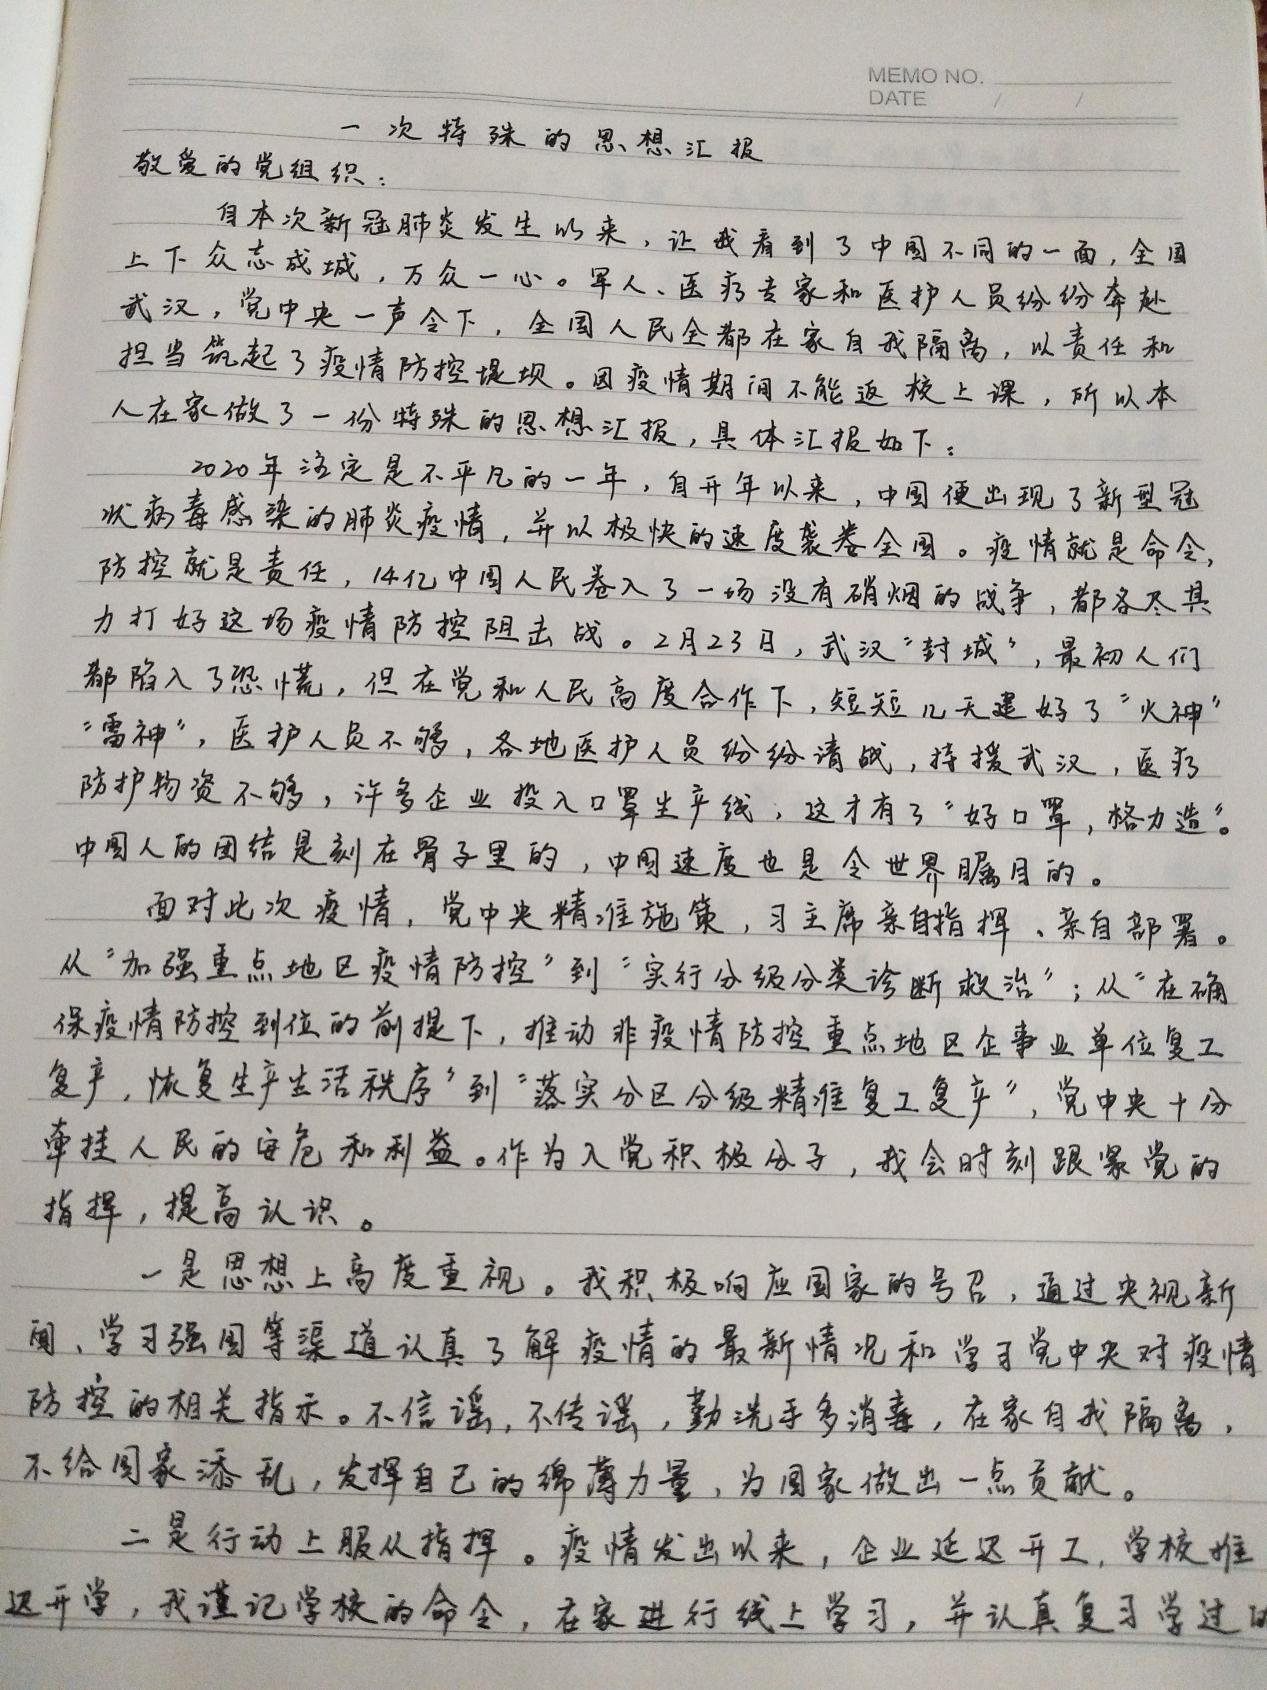 MEMO NO.
DATE / /
一次特殊的思想汇报
敬爱的党组织：
自本次新冠肺炎发生以来，让我看到了中国不同的一面，全国
上下众志成城，万众一心。军人、医疗专家和医护人员纷纷奔赴
武汉，党中央一声令下，全国人民全都在家自我隔离，以责任和
担当筑起了疫情防控堤坝。因疫情期间不能返校上课，所以本
人在家做了一份特殊的思想汇报，具体汇报如下：
2020年注定是不平凡的一年，自开年以来，中国便出现了新型冠
状病毒感染的肺炎疫情，并以极快的速度袭卷全国。疫情就是命令，
防控就是责任，14亿中国人民卷入了一场没有硝烟的战争，都各尽其
力打好这场疫情防控阻击战。2月23日，武汉“封城”，最初人们
都陷入了恐慌，但在党和人民高度合作下，短短几天建好了“火神”
“雷神”，医护人员不够，各地医护人员纷纷请战，持援武汉，医疗
防护物资不够，许多企业投入口罩生产线，这才有了“好口罩，格力造”。
中国人的团结是刻在骨子里的，中国速度也是令世界瞩目的。
面对此次疫情，党中央精准施策，习主席亲自指挥、亲自部署。
从“加强重点地区疫情防控”到“实行分级分类诊断救治”；从“在确
保疫情防控到位的前提下，推动非疫情防控重点地区企事业单位复工
复产，恢复生产生活秩序”到“落实分区分级精准复工复产”，党中央十分
牵挂人民的安危和利益。作为入党积极分子，我会时刻跟紧党的
指挥，提高认识。
一是思想上高度重视。我积极响应国家的号召，通过央视新
闻、学习强国等渠道认真了解疫情的最新情况和学习党中央对疫情
防控的相关指示。不信谣，不传谣，勤洗手多消毒，在家自我隔离，
不给国家添乱，发挥自己的绵薄力量，为国家做出一点贡献。
二是行动上服从指挥。疫情发出以来，企业延迟开工，学校推
迟开学，我谨记学校的命令，在家进行线上学习，并认真复习学过的